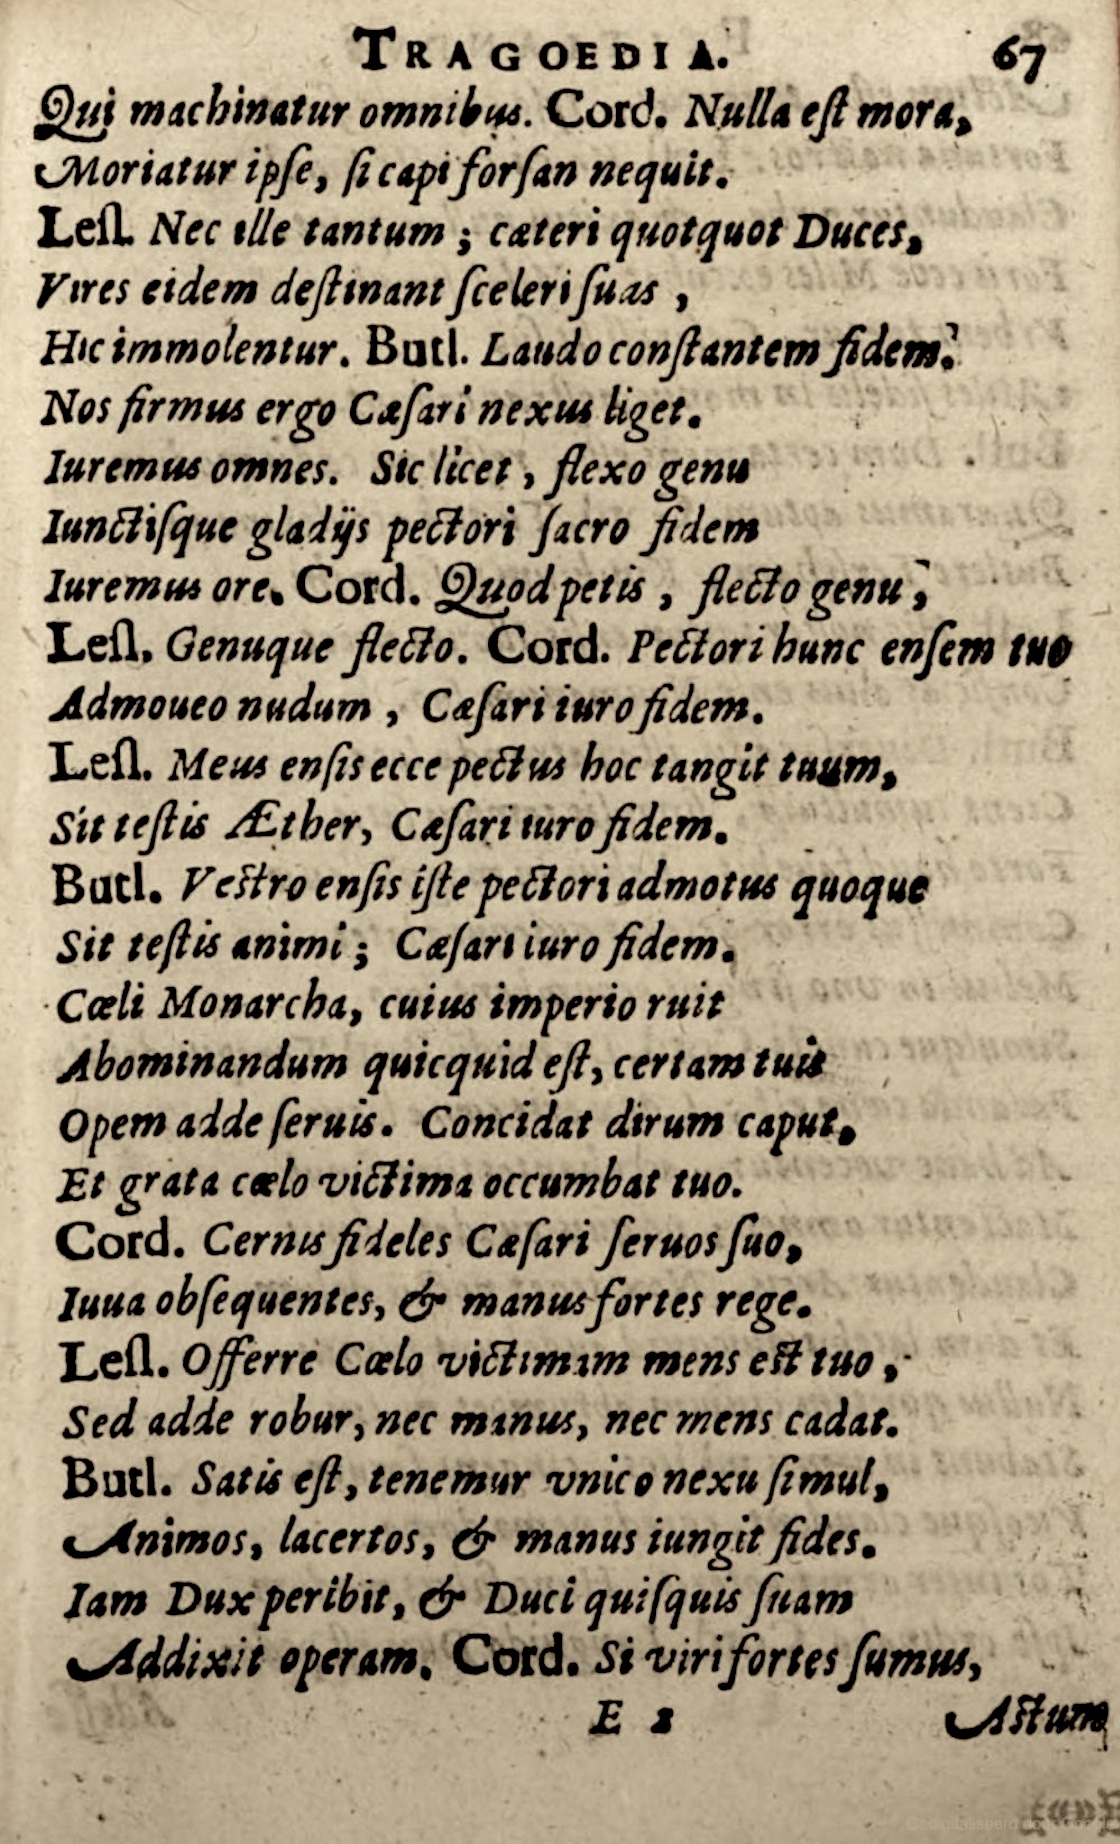 TRAGOEDIA. 67
Qui machinatur omnibus. Cord. Nulla eſt mora,
Moriatur ipſe, ſi capi forſan nequit.
Leſl. Nec ille tantum ; cæteri quotquot Duces,
Vires eidem deſtinant ſceleri ſuas ,
Hic immolentur. Butl. Laudo conſtantem fidem.
Nos firmus ergo Cæſari nexus liget.
Iuremus omnes. Sic licet , flexo genu
Iunctiſque gladijs pectori ſacro fidem
Iuremus ore. Cord. Quod petis , flecto genu ;
Leſl. Genuque flecto. Cord. Pectori hunc enſem tuo
Admoueo nudum , Cæſari iuro fidem.
Leſl. Meus enſis ecce pectus hoc tangit tuum,
Sit teſtis Æther, Cæſari iuro fidem.
Butl. Veſtro enſis iſte pectori admotus quoque
Sit teſtis animi ; Cæſari iuro fidem.
Cœli Monarcha, cuius imperio ruit
Abominandum quicquid eſt, certam tuis
Opem adde ſeruis. Concidat dirum caput,
Et grata cœlo victima occumbat tuo.
Cord. Cernis fideles Cæſari ſeruos ſuo,
Iuua obſequentes, & manus fortes rege.
Leſl. Offerre Cœlo victimam mens eſt tuo ,
Sed adde robur, nec manus, nec mens cadat.
Butl. Satis eſt, tenemur vnico nexu ſimul,
Animos, lacertos, & manus iungit fides.
Iam Dux peribit, & Duci quiſquis ſuam
Addixit operam. Cord. Si viri fortes ſumus,
E 2 Aſtum